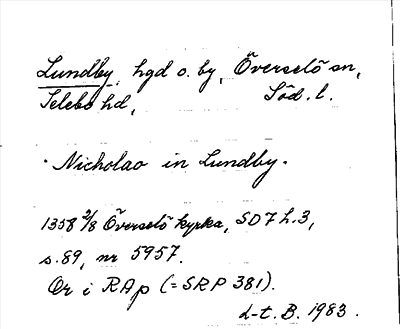 Lundby, hgd o. by, Överselö sn,
Selebo hd, Söd. l.
· Nicholao in Lundby.
1358 3/8 Överselö kyrka, SD7 h.3,
s.89, nr 5957.
Or i RAp (=SRP 381).
L-t. B. 1983.